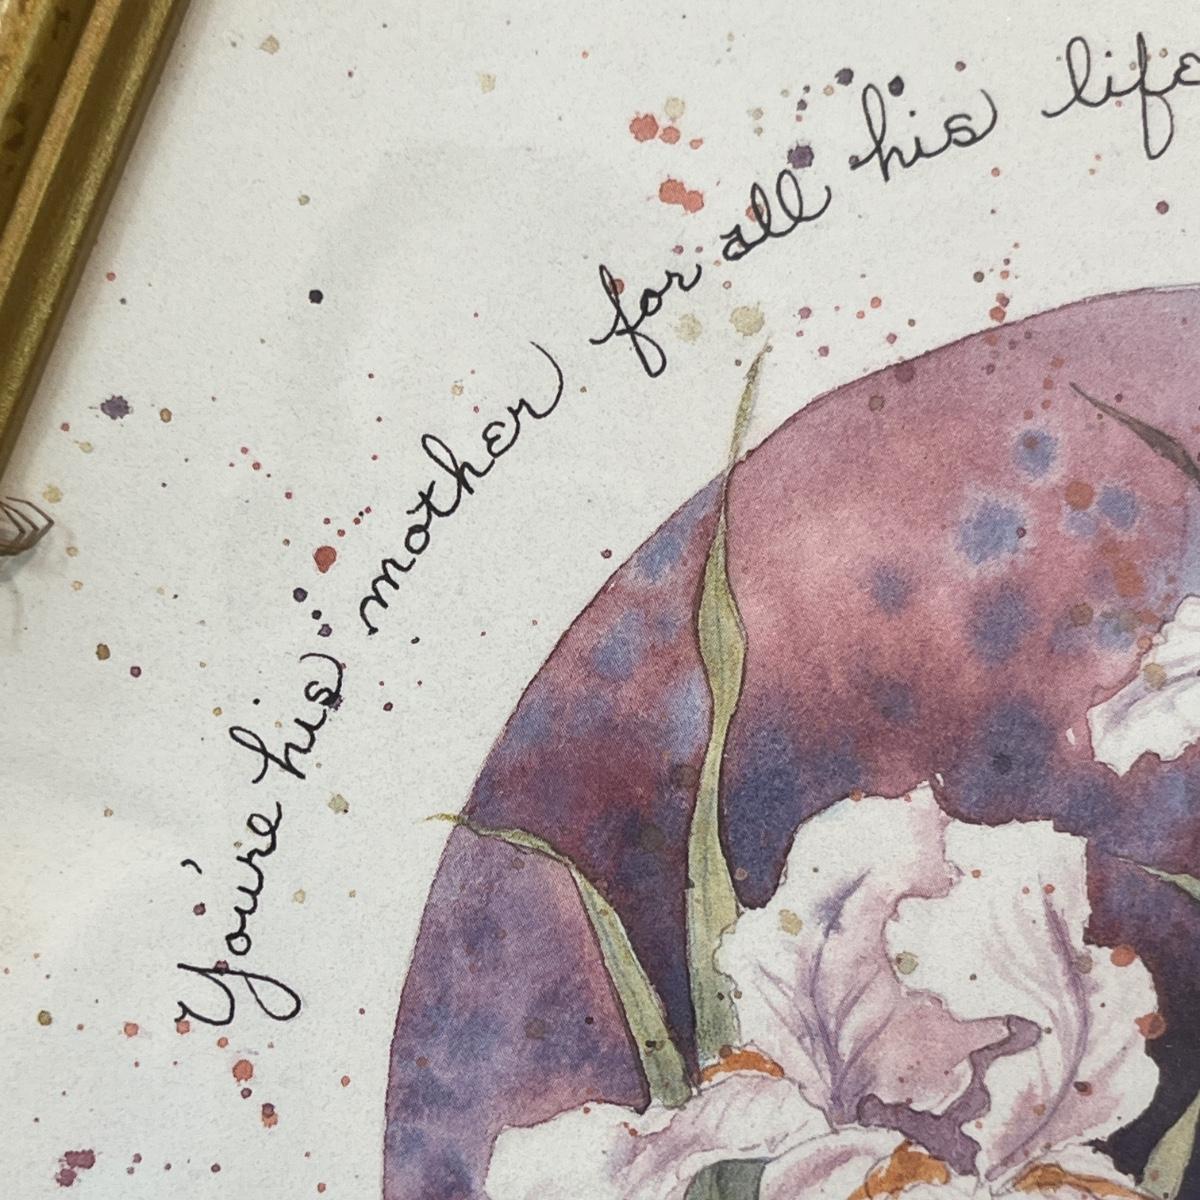 You're his mother for all his life